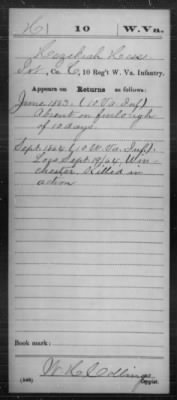 H | 10 | W. Va.
Hezekiah
Pvt., Co. C, 10 Reg't W. Va. Infantry.
Appears on Returns as follows:
June 1863. (10 Va. Inf.)
Absent on furlough
of 10 days.
Sept. 1864 (10 W. Va. Inf.).
Loss Sept. 19/64, Win-
chester. Killed in
action
Book mark:
W. H. Collings
Copyist.